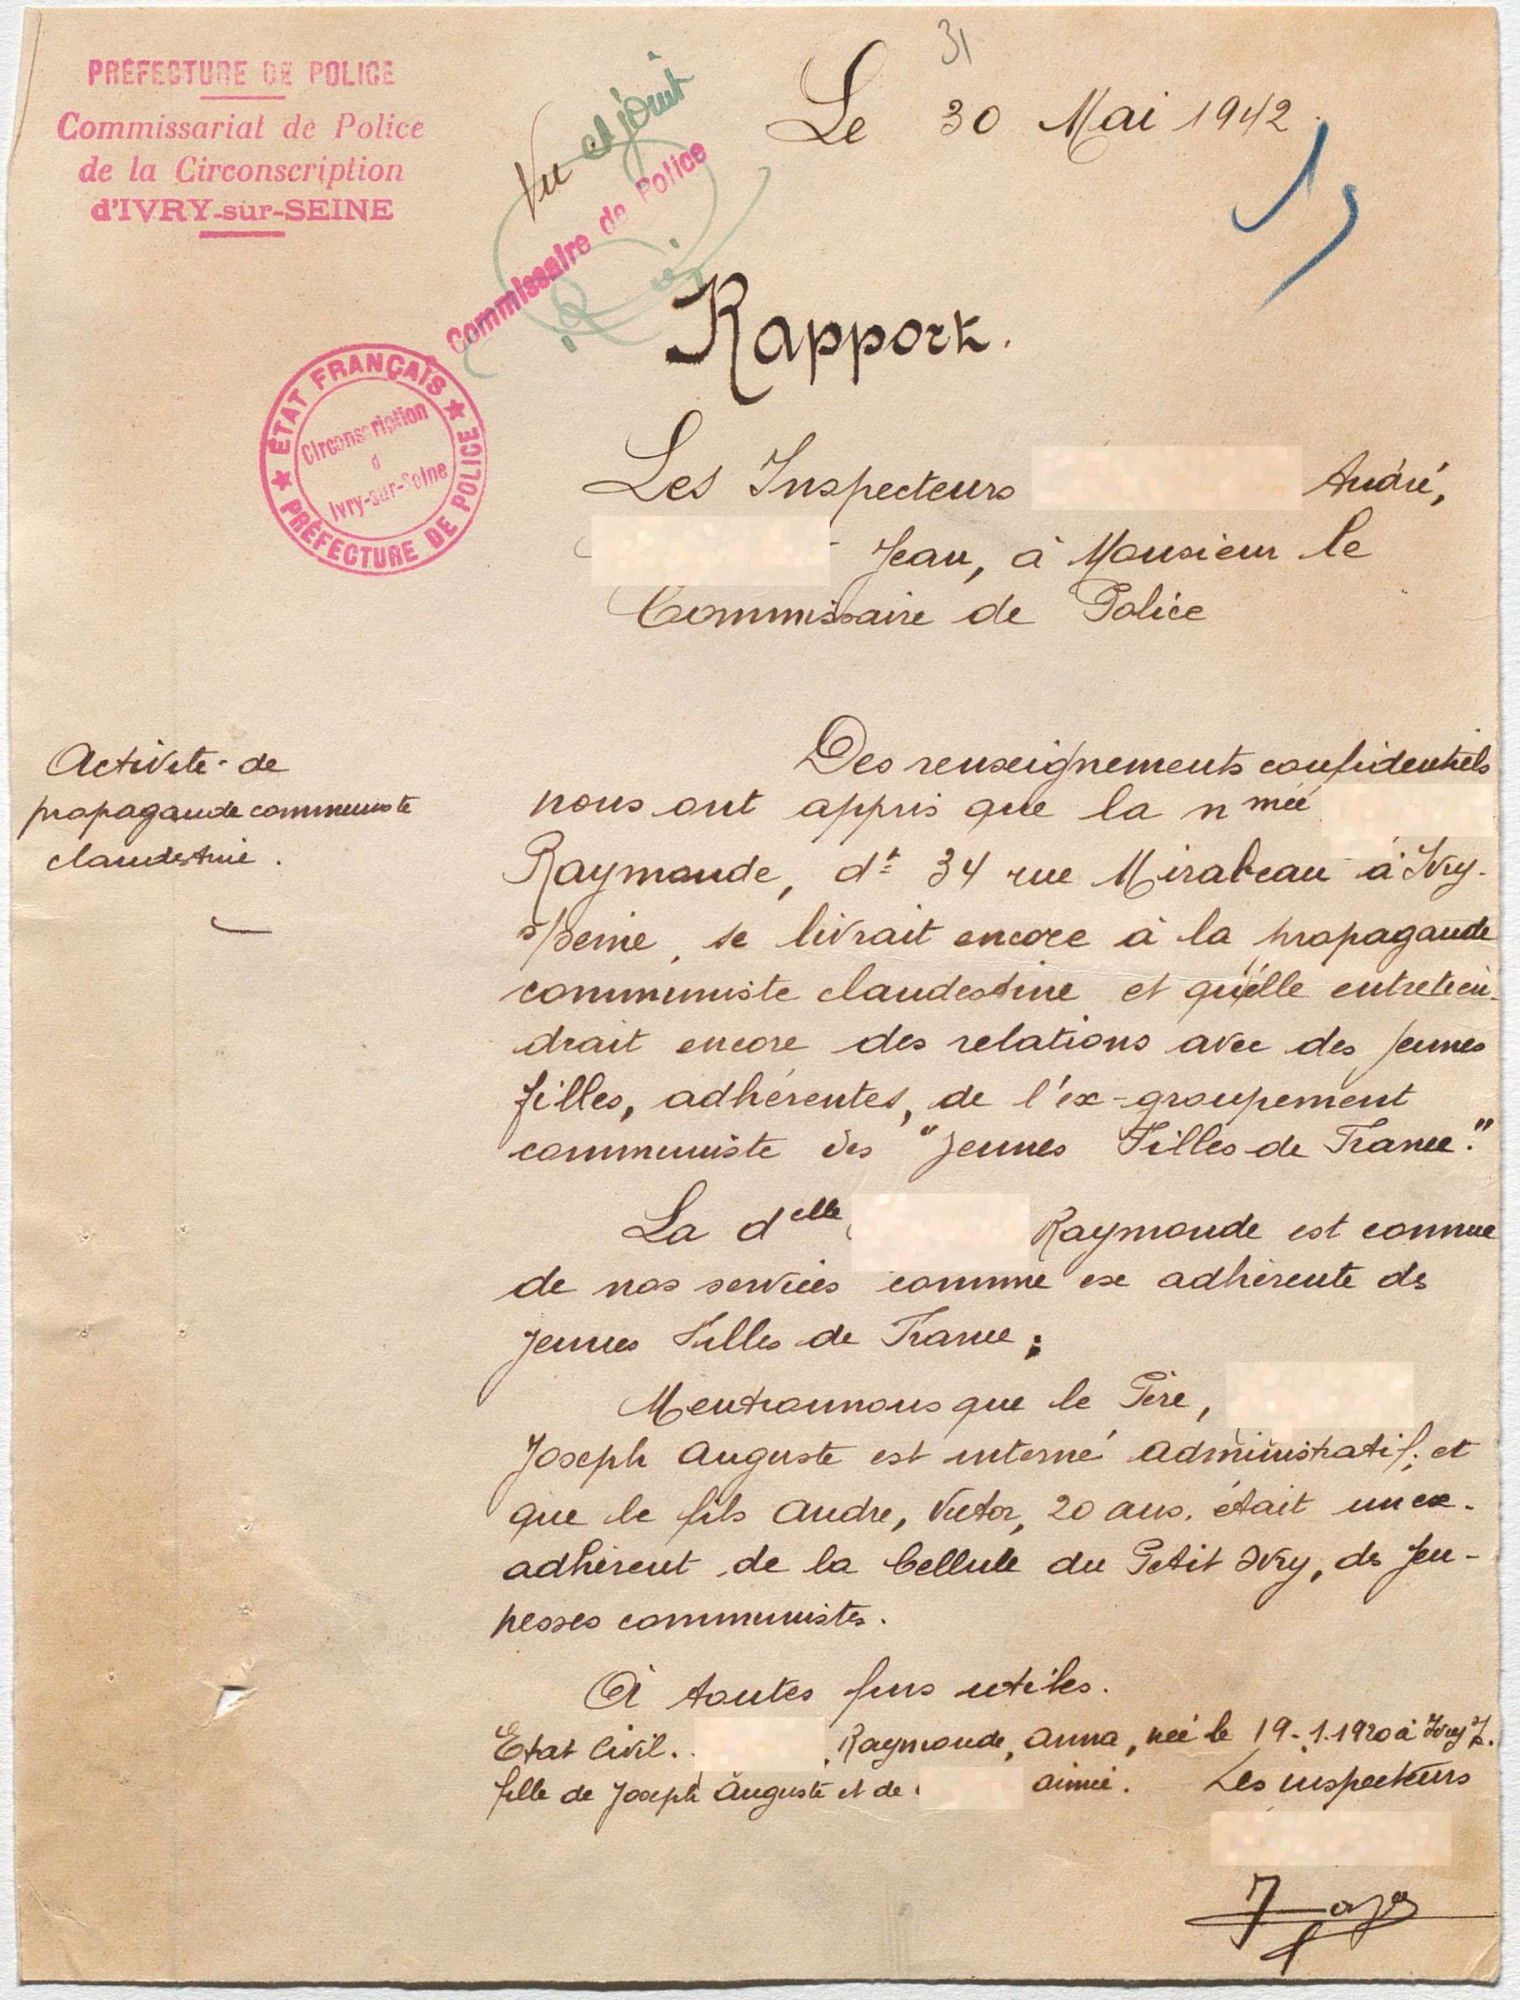 PRÉFECTURE DE POLICE
Commissariat de Police
de la Circonscription
d'IVRY-sur-SEINE
Vu et joint
Commissaire de Police
31
Le 30 Mai 1942.
Rapport.
ÉTAT FRANÇAIS
PRÉFECTURE DE POLICE
Circonscription
d
Ivry-sur-Seine
Les Inspecteurs André,
Jean, à Monsieur le
Commissaire de Police
Activité de
propagande communiste
clandestine.
Des renseignements confidentiels
nous ont appris que la nmée
Raymonde, dt 34 rue Mirabeau à Ivry-
s/Seine, se livrait encore à la propagande
communiste clandestine et qu'elle entretien-
drait encore des relations avec des jeunes
filles, adhérentes, de l'ex-groupement
communiste des "Jeunes Filles de France."
La delle Raymonde est connue
de nos services comme ex adhérente des
Jeunes Filles de France;
Mentionnons que le Père,
Joseph Auguste est interné administratif; et
que le fils André, Victor, 20 ans. était un ex-
adhérent de la Cellule du Petit Ivry, des Jeu-
nesses communistes.
A toutes fins utiles.
Etat Civil. Raymonde, Anna, née le 19-1-1920 à Ivry S.
fille de Joseph Auguste et de Aimée. Les inspecteurs